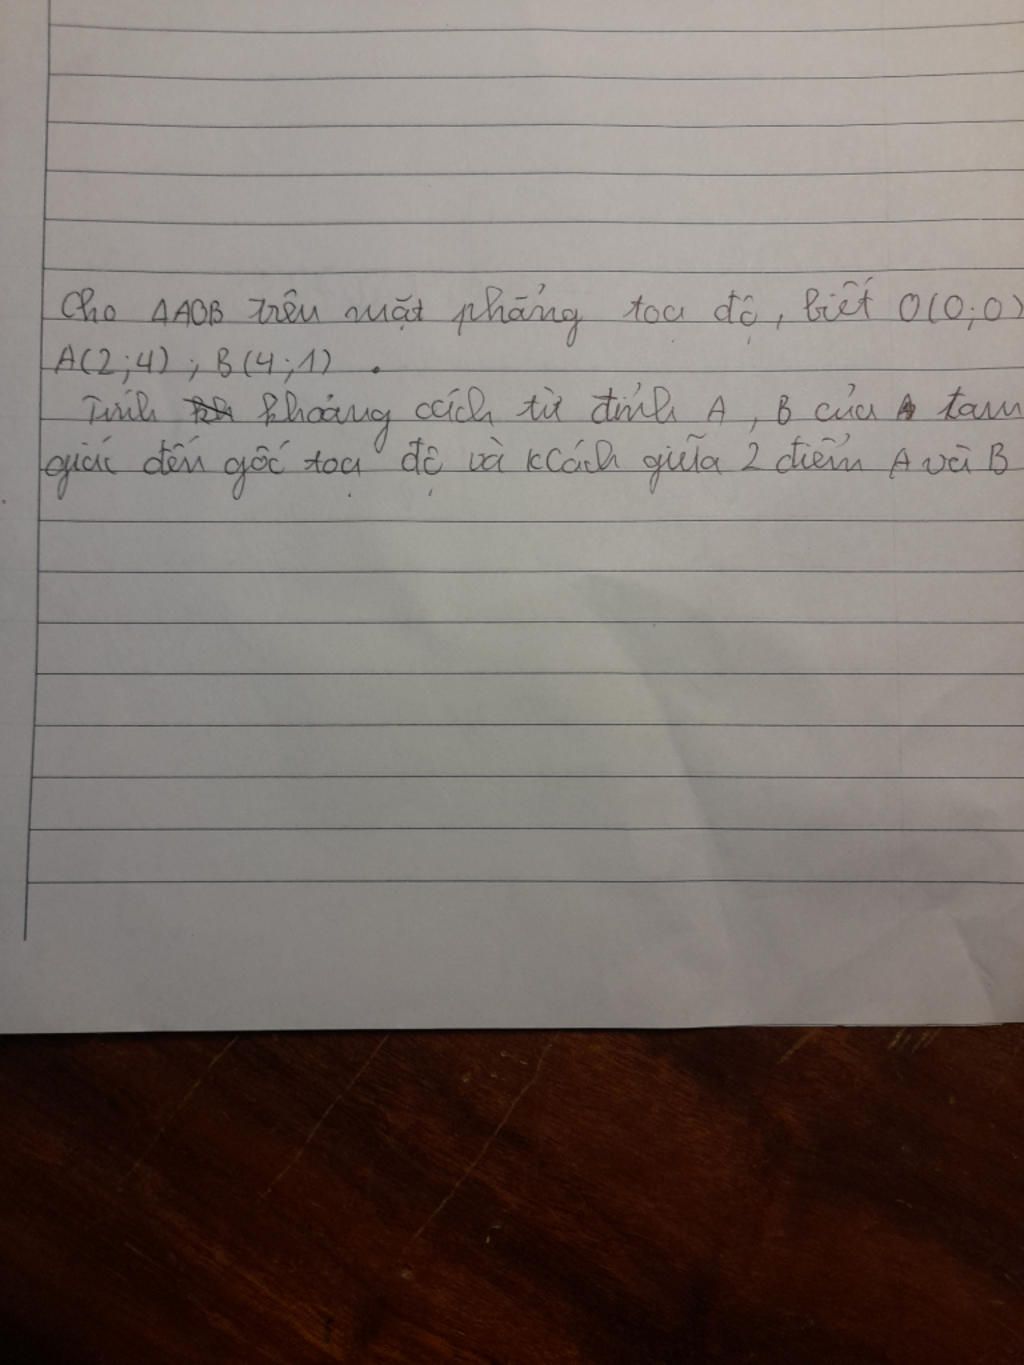 Cho ΔAOB trên mặt phẳng toạ độ, biết O(0;0)
A(2;4); B(4;1).
Tính khoảng cách từ đỉnh A, B của tam
giác đến gốc toạ độ và kCách giữa 2 điểm A và B